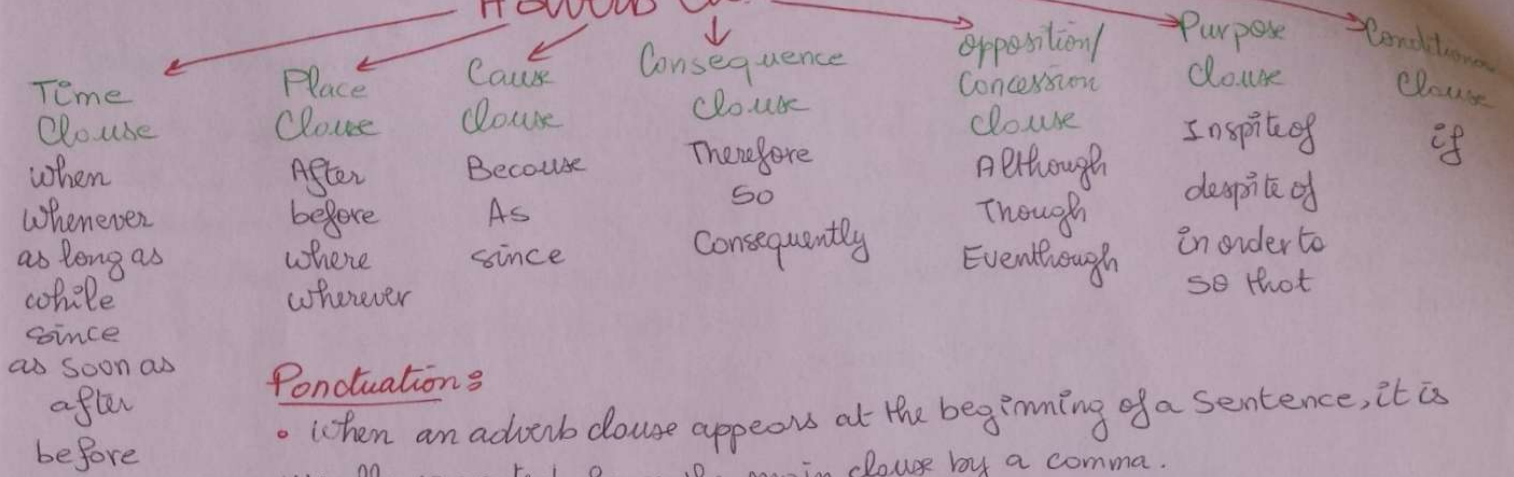 Time
Clouse
when
whenever
as long as
while
since
as soon as
after
before
Place
Clouse
After
before
where
wherever
Cause
Clouse
Because
As
since
Consequence
Clouse
Therefore
so
Consequently
Opposition/
Concession
Clouse
Although
Though
Eventhough
Purpose
Clouse
Inspite of
despite of
in order to
so that
Clouse
if
Ponctuation:
• When an adverb clouse appears at the beginning of a sentence, it is
main clouse by a comma.